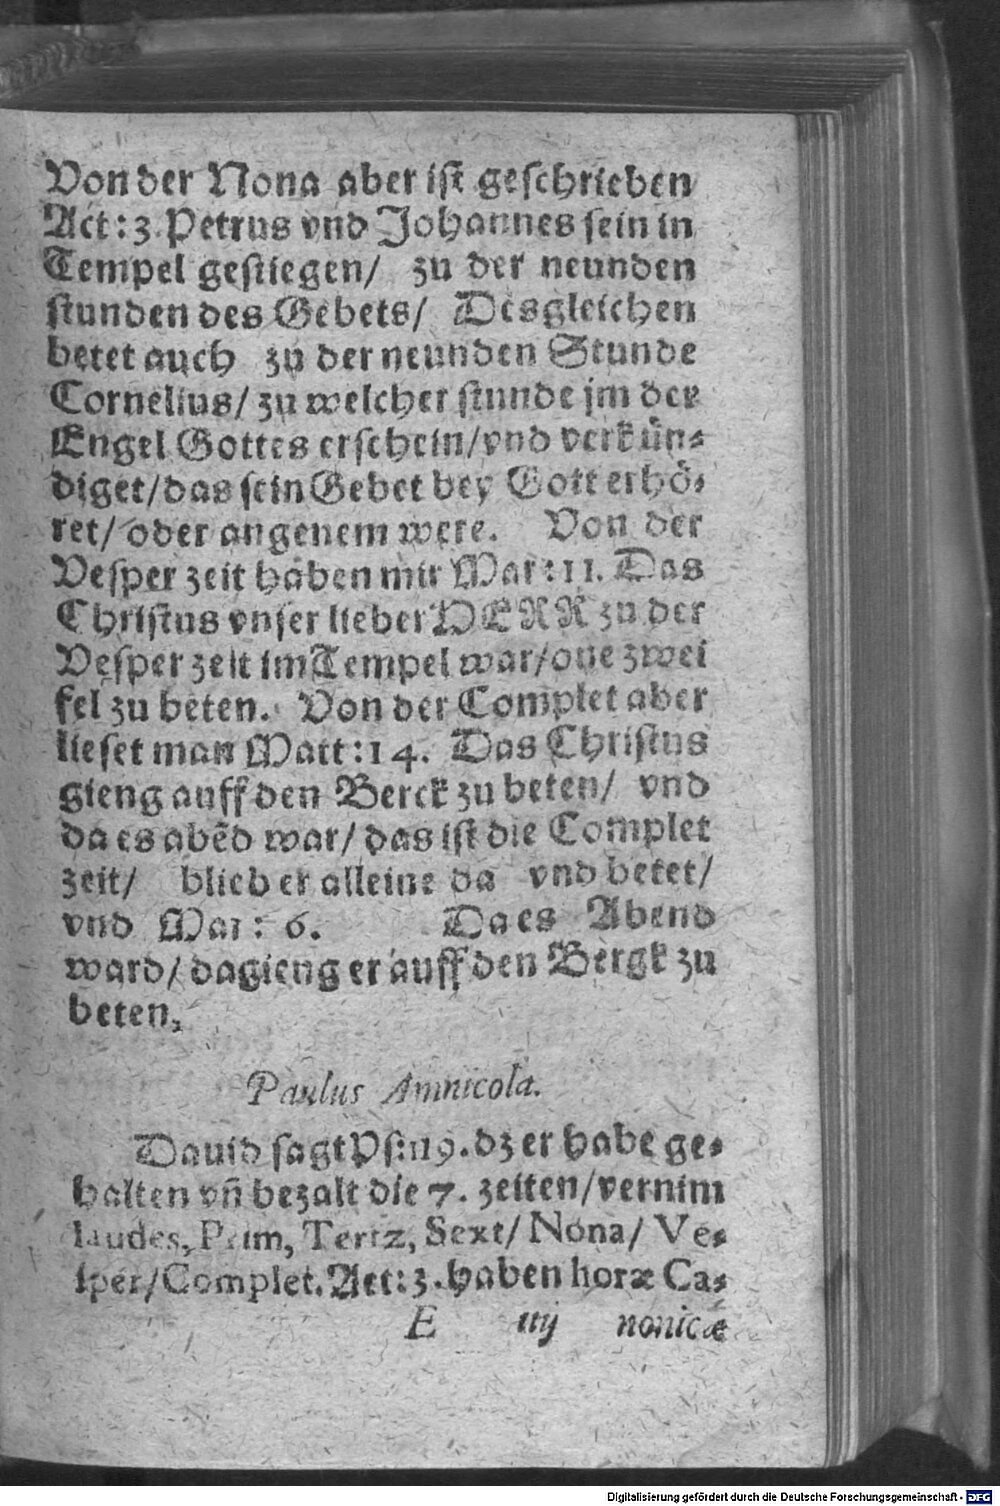 Von der Nona aber ist geschrieben
Act: 3. Petrus vnd Johannes sein in
Tempel gestiegen/ zu der neunden
stunden des Gebets/ Desgleichen
betet auch zu der neunden Stunde
Cornelius/ zu welcher stunde jm der
Engel Gottes erschein/ vnd verkün-
diget/ das sein Gebet bey Gott erhö-
ret/ oder angenem were. Von der
Vesper zeit haben mir Mar: 11. Das
Christus vnser lieber HERR zu der
Vesper zeit im Tempel war/ one zwei
fel zu beten. Von der Complet aber
lieset man Matt: 14. Das Christus
gieng auff den Berck zu beten/ vnd
da es abẽd war/ das ist die Complet
zeit/ blieb er alleine da vnd betet/
vnd Mar: 6. Da es Abend
ward/ da gieng er auff den Bergk zu
beten.
Paulus Amnicola.
Dauid sagt Ps: 119. dz er habe ge-
halten vñ bezalt die 7. zeiten/ vernim
laudes, Prim, Tertz, Sext/ Nona/ Ve-
sper/ Complet. Act: 3. haben horæ Ca-
E iiij nonicæ
Digitalisierung gefördert durch die Deutsche Forschungsgemeinschaft - DFG